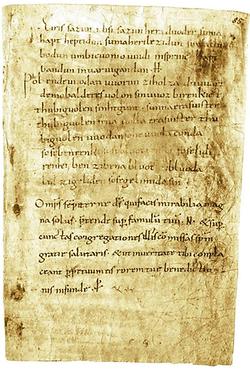 Eiris sazun idisi sazun hera duoder suma
hapt heptidun sumaherilezidun sumaclu
bodun umbicuoniouuidi insprinc hapt
bandun inuar uigandun· H·
Phol endeuuodan uuorun ziholza du uuart
demobalderes uolon sinuuoz birenkict
thubiguolen sinhtgunt· sunnaerasuister
thubiguolen friia uolla erasuister thu
biguolen uuodan sohe uuolaconda
sosebenrenki sose bluotrenki soselidi
renki ben zibena bluot zibluoda
lid zigeliden sosegelimida sin·
Omps sempiterne ds qui facis mirabilia mag
na solus p̄tende sup famulū tuū· N· & sup
cunctas congregationes illis cōmissas spm
gratie salutaris· & ut inueritate tibi compla
ceant ppetuum eis rorem tue benedictio
nis infunde p